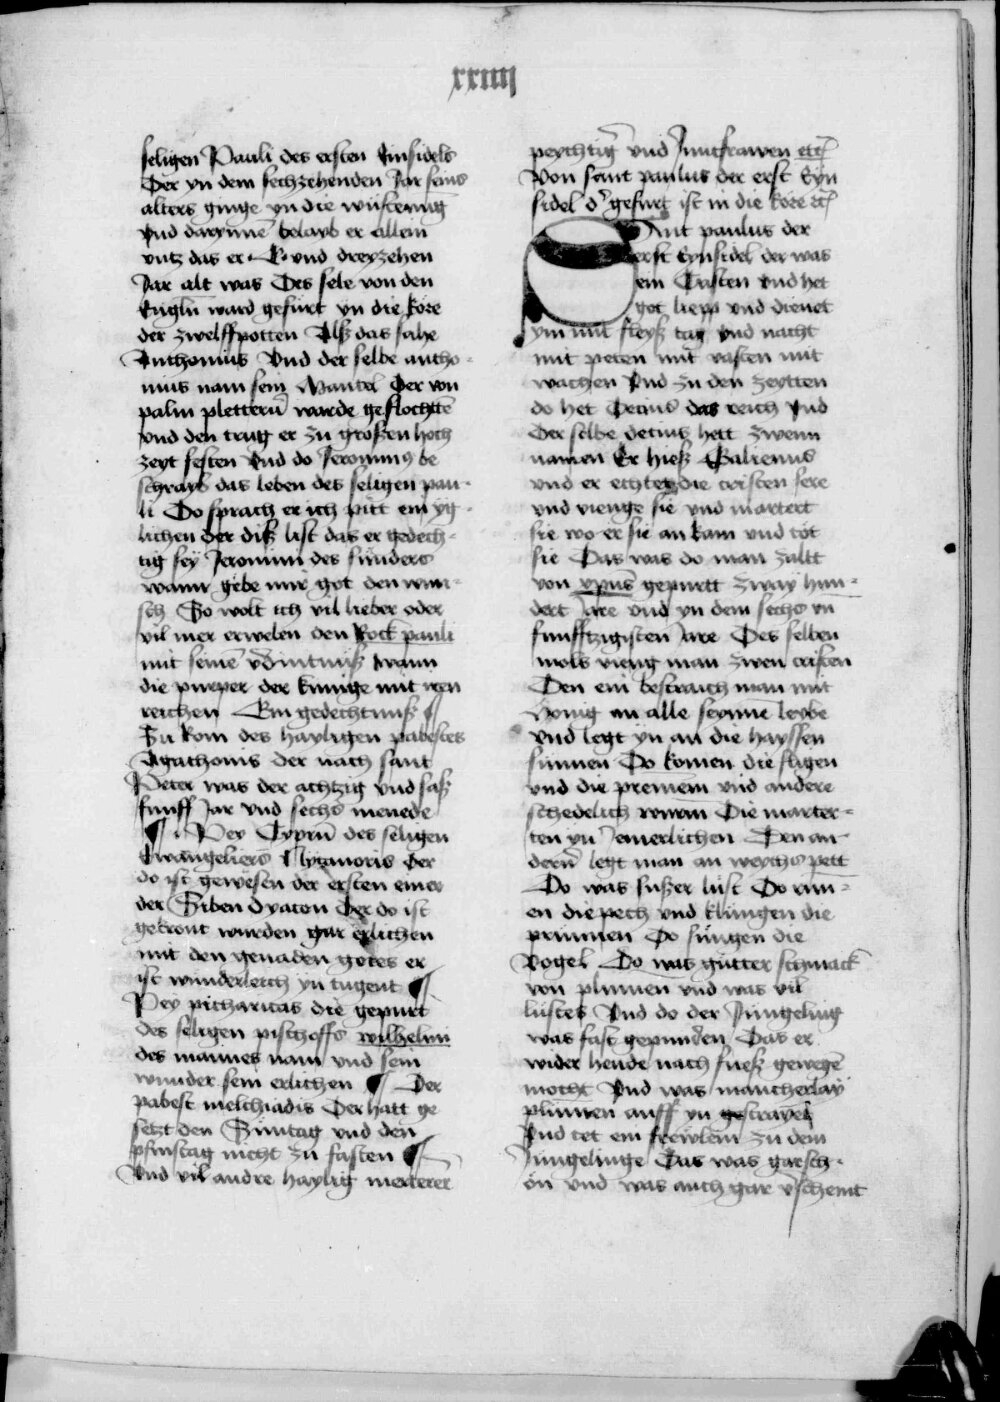 xxiiij
seligen Pauli des ersten Einsidels
Der yn dem sechzehenden Jar seins
alters ginge yn die wüstenung
Vnd darynnē belayb er allein
vntz das er C vnd dreyzehen
Jar alt was Des sele von den
Englū ward gefürt yn die köre
der zwelffpotten Alß das sahe
Anthonius Vnd der selbe antho-
nius nam sein Mantel Der von
palm pletterū warde geflochtē
vnd den trug er zu großen hoch
zeyt festen Vnd do Jeronimus be
schrayb das leben des seligen pau-
li Do sprach er ich pitt ein yg-
lichen der diß list das er gedech-
tig sey Jeronimi des sünders
wann gebe mir got den wun-
sch So wolt ich vil lieber oder
vil mer erwelen den Rock pauli
mit seinē v̄dintnuß wann
die purper der künige mit iren
reichen Ein gedechtnuß ¶
Zu Rom des hayligen pabestes
Agathonis der nach sant
Peter was der achtzig vnd saß
funff Jar vnd sechs menede
¶ Pey Cyprū des seligen
Ewangeliers Nycanoris Der
do ist gewesen der ersten einer
der Siben dyacon Der do ist
gekront wurden gar erlichen
mit den genaden gotes er
ist wunderleich yn tugent ¶
Pey pictharicas die gepurt
des seligen pischoffs wilhelmi
des mannes nam vnd sein
wunder sein erlichen ¶ Der
pabest melchiadis Der hatt ge
setzt den Suntag vnd den
pfinstag nicht zu fasten ¶
Vnd vil andre haylig merterer
peychtig̃ vnd Junckfrawen etc̃
Von sant paulus der erst Eyn
sidel d̾ gefurt ist in die köre etc̃
Sant paulus der
erst Eynsidel der was
ein Cristen vnd het
got liepp vnd dienet
ym mit fleyß tag vnd nacht
mit peten mit vasten mit
wachen Vnd zu den zeytten
do het Decius das reich Vnd
Der selbe decius hett zwenn
namen Er hieß Galienus
vnd er echtet die cristen sere
vnd vienge sie vnd martert
sie wo er sie an kam vnd töt
sie Das was do man zaltt
von xpūs gepurtt zway hun-
dert Jare vnd yn dem sechs vn
funfftzigisten Jare Des selben
mols vieng man zwen cristen
Den ein bestraich man mit
Honig an alle seynnē leybe
vnd legt yn an die hayssen
sunnen Do komen die fligen
vnd die premenn vnd andere
schedelich wurm Die marter-
ten yn Jemerlichen Den an-
dern̄ legt man an weychs pett
Do was sußer lust Do run-
en die pech vnd klungen die
prunnen Do sungen die
Vogel Do was gutter schmack
von plumen vnd was vil
lustes Vnd do der Jungeling
was fast gepunden Das er
wider hende nach fueß gewegē
mocht Vnd was mancherlay
plumen auff yn gestrayet
Vnd tet ein frewlein zu dem
Jungelinge Das was gar sch-
ön vnd was auch gar v̾schemt